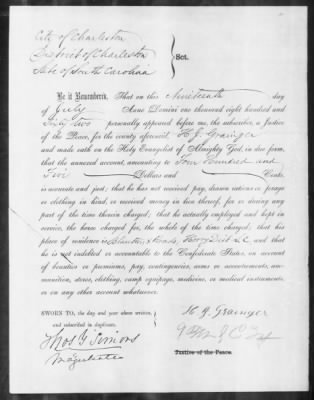 City of Charleston
District of Charleston
State of South Carolina
} Sct.
Be it Remembered, That on this Nineteenth day
of July Anno Domini one thousand eight hundred and
Sixty two personally appeared before me, the subscriber, a Justice
of the Peace, for the county aforesaid, H. J. Grainger
and made oath on the Holy Evangelist of Almighty God, in due form,
that the annexed account, amounting to Four Hundred and
Five Dollars and Cents,
is accurate and just; that he has not received pay, drawn rations or forage
or clothing in kind, or received money in lieu thereof, for or during any
part of the time therein charged; that he actually employed and kept in
service, the horse charged for, the whole of the time charged; that his
place of residence is Roads, Horry Dist S.C. and that he
is not indebted or accountable to the Confederate States, on account
of bounties or premiums, pay, contingencies, arms or accoutrements, am-
munition, stores, clothing, camp equipage, medicine, or medical instruments,
or on any other account whatsoever.
SWORN TO, the day and year above written,
and subscribed in duplicate,
H. J. Grainger
Thos G Simons
Magistrate
Justice of the Peace.